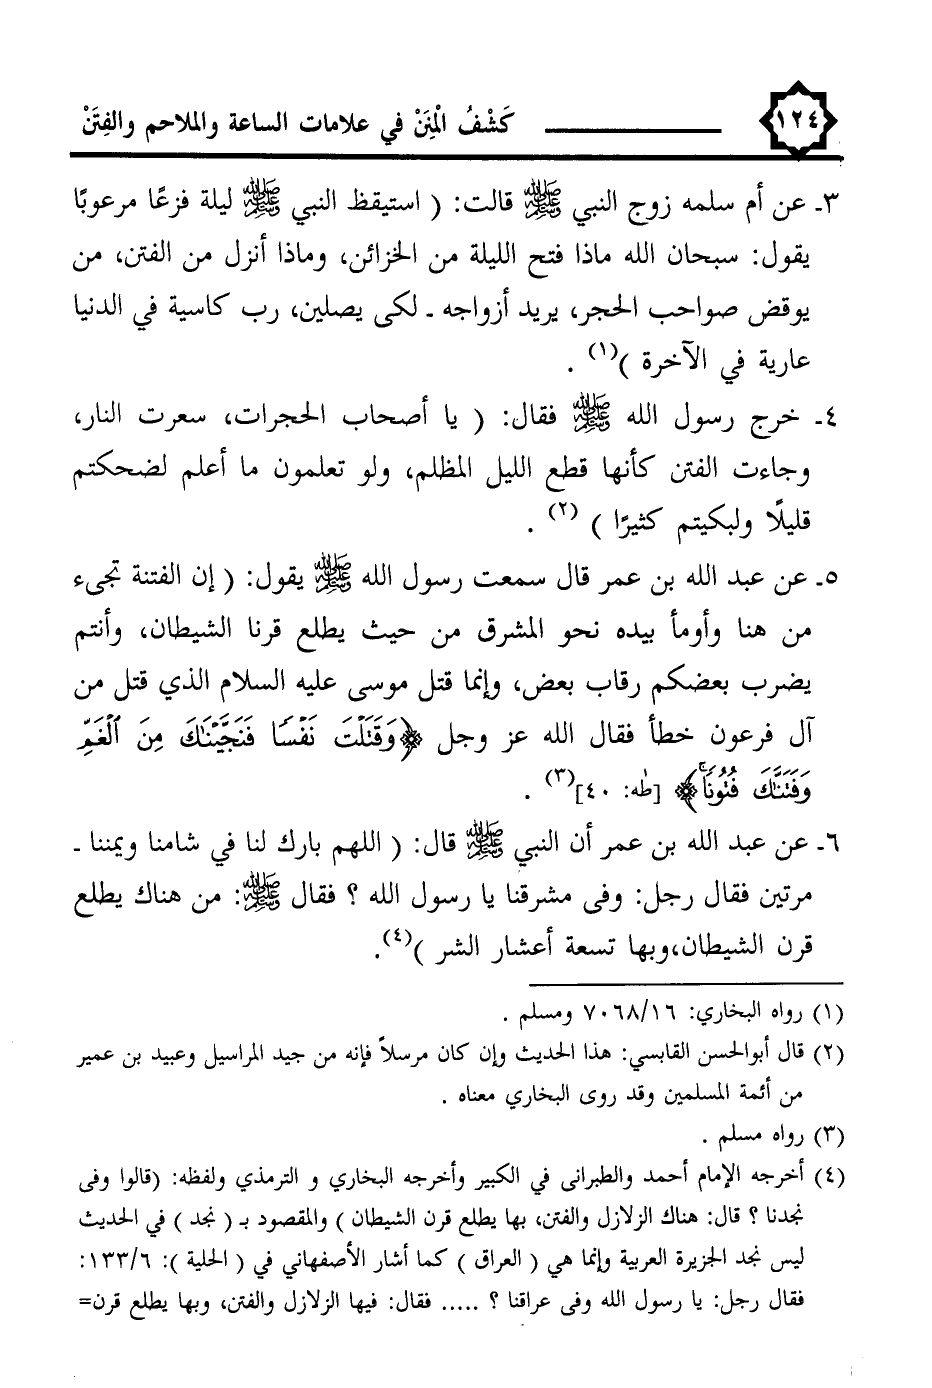 ١٢٤ كَشْفُ الْمِنَنْ في علامات الساعة والملاحم والفِتَنْ
٣ـ عن أم سلمه زوج النبي ﷺ قالت: ( استيقظ النبي ﷺ ليلة فزعًا مرعوبًا
يقول: سبحان الله ماذا فتح الليلة من الخزائن، وماذا أنزل من الفتن، من
يوقض صواحب الحجر، يريد أزواجه ـ لكى يصلين، رب كاسية في الدنيا
عارية في الآخرة )(١) .
٤ـ خرج رسول الله ﷺ فقال: ( يا أصحاب الحجرات، سعرت النار،
وجاءت الفتن كأنها قطع الليل المظلم، ولو تعلمون ما أعلم لضحكتم
قليلًا ولبكيتم كثيرًا ) (٢) .
٥ـ عن عبد الله بن عمر قال سمعت رسول الله ﷺ يقول: ( إن الفتنة تجىء
من هنا وأومأ بيده نحو المشرق من حيث يطلع قرنا الشيطان، وأنتم
يضرب بعضكم رقاب بعض، وإنما قتل موسى عليه السلام الذي قتل من
آل فرعون خطأ فقال الله عز وجل ﴿وَقَتَلْتَ نَفْسًا فَنَجَّيْنَٰكَ مِنَ ٱلْغَمِّ
وَفَتَنَّٰكَ فُتُونًا ۚ﴾ [طه: ٤٠](٣) .
٦ـ عن عبد الله بن عمر أن النبي ﷺ قال: ( اللهم بارك لنا في شامنا ويمننا ـ
مرتين فقال رجل: وفى مشرقنا يا رسول الله ؟ فقال ﷺ: من هناك يطلع
قرن الشيطان،وبها تسعة أعشار الشر )(٤).
(١) رواه البخاري: ٧٠٦٨/١٦ ومسلم .
(٢) قال أبوالحسن القابسي: هذا الحديث وإن كان مرسلاً فإنه من جيد المراسيل وعبيد بن عمير
من أئمة المسلمين وقد روى البخاري معناه .
(٣) رواه مسلم .
(٤) أخرجه الإمام أحمد والطبرانى في الكبير وأخرجه البخاري و الترمذي ولفظه: (قالوا وفى
نجدنا ؟ قال: هناك الزلازل والفتن، بها يطلع قرن الشيطان ) والمقصود بـ ( نجد ) في الحديث
ليس نجد الجزيرة العربية وإنما هي ( العراق ) كما أشار الأصفهاني في ( الحلية ): ١٣٣/٦:
فقال رجل: يا رسول الله وفى عراقنا ؟ ..... فقال: فيها الزلازل والفتن، وبها يطلع قرن=